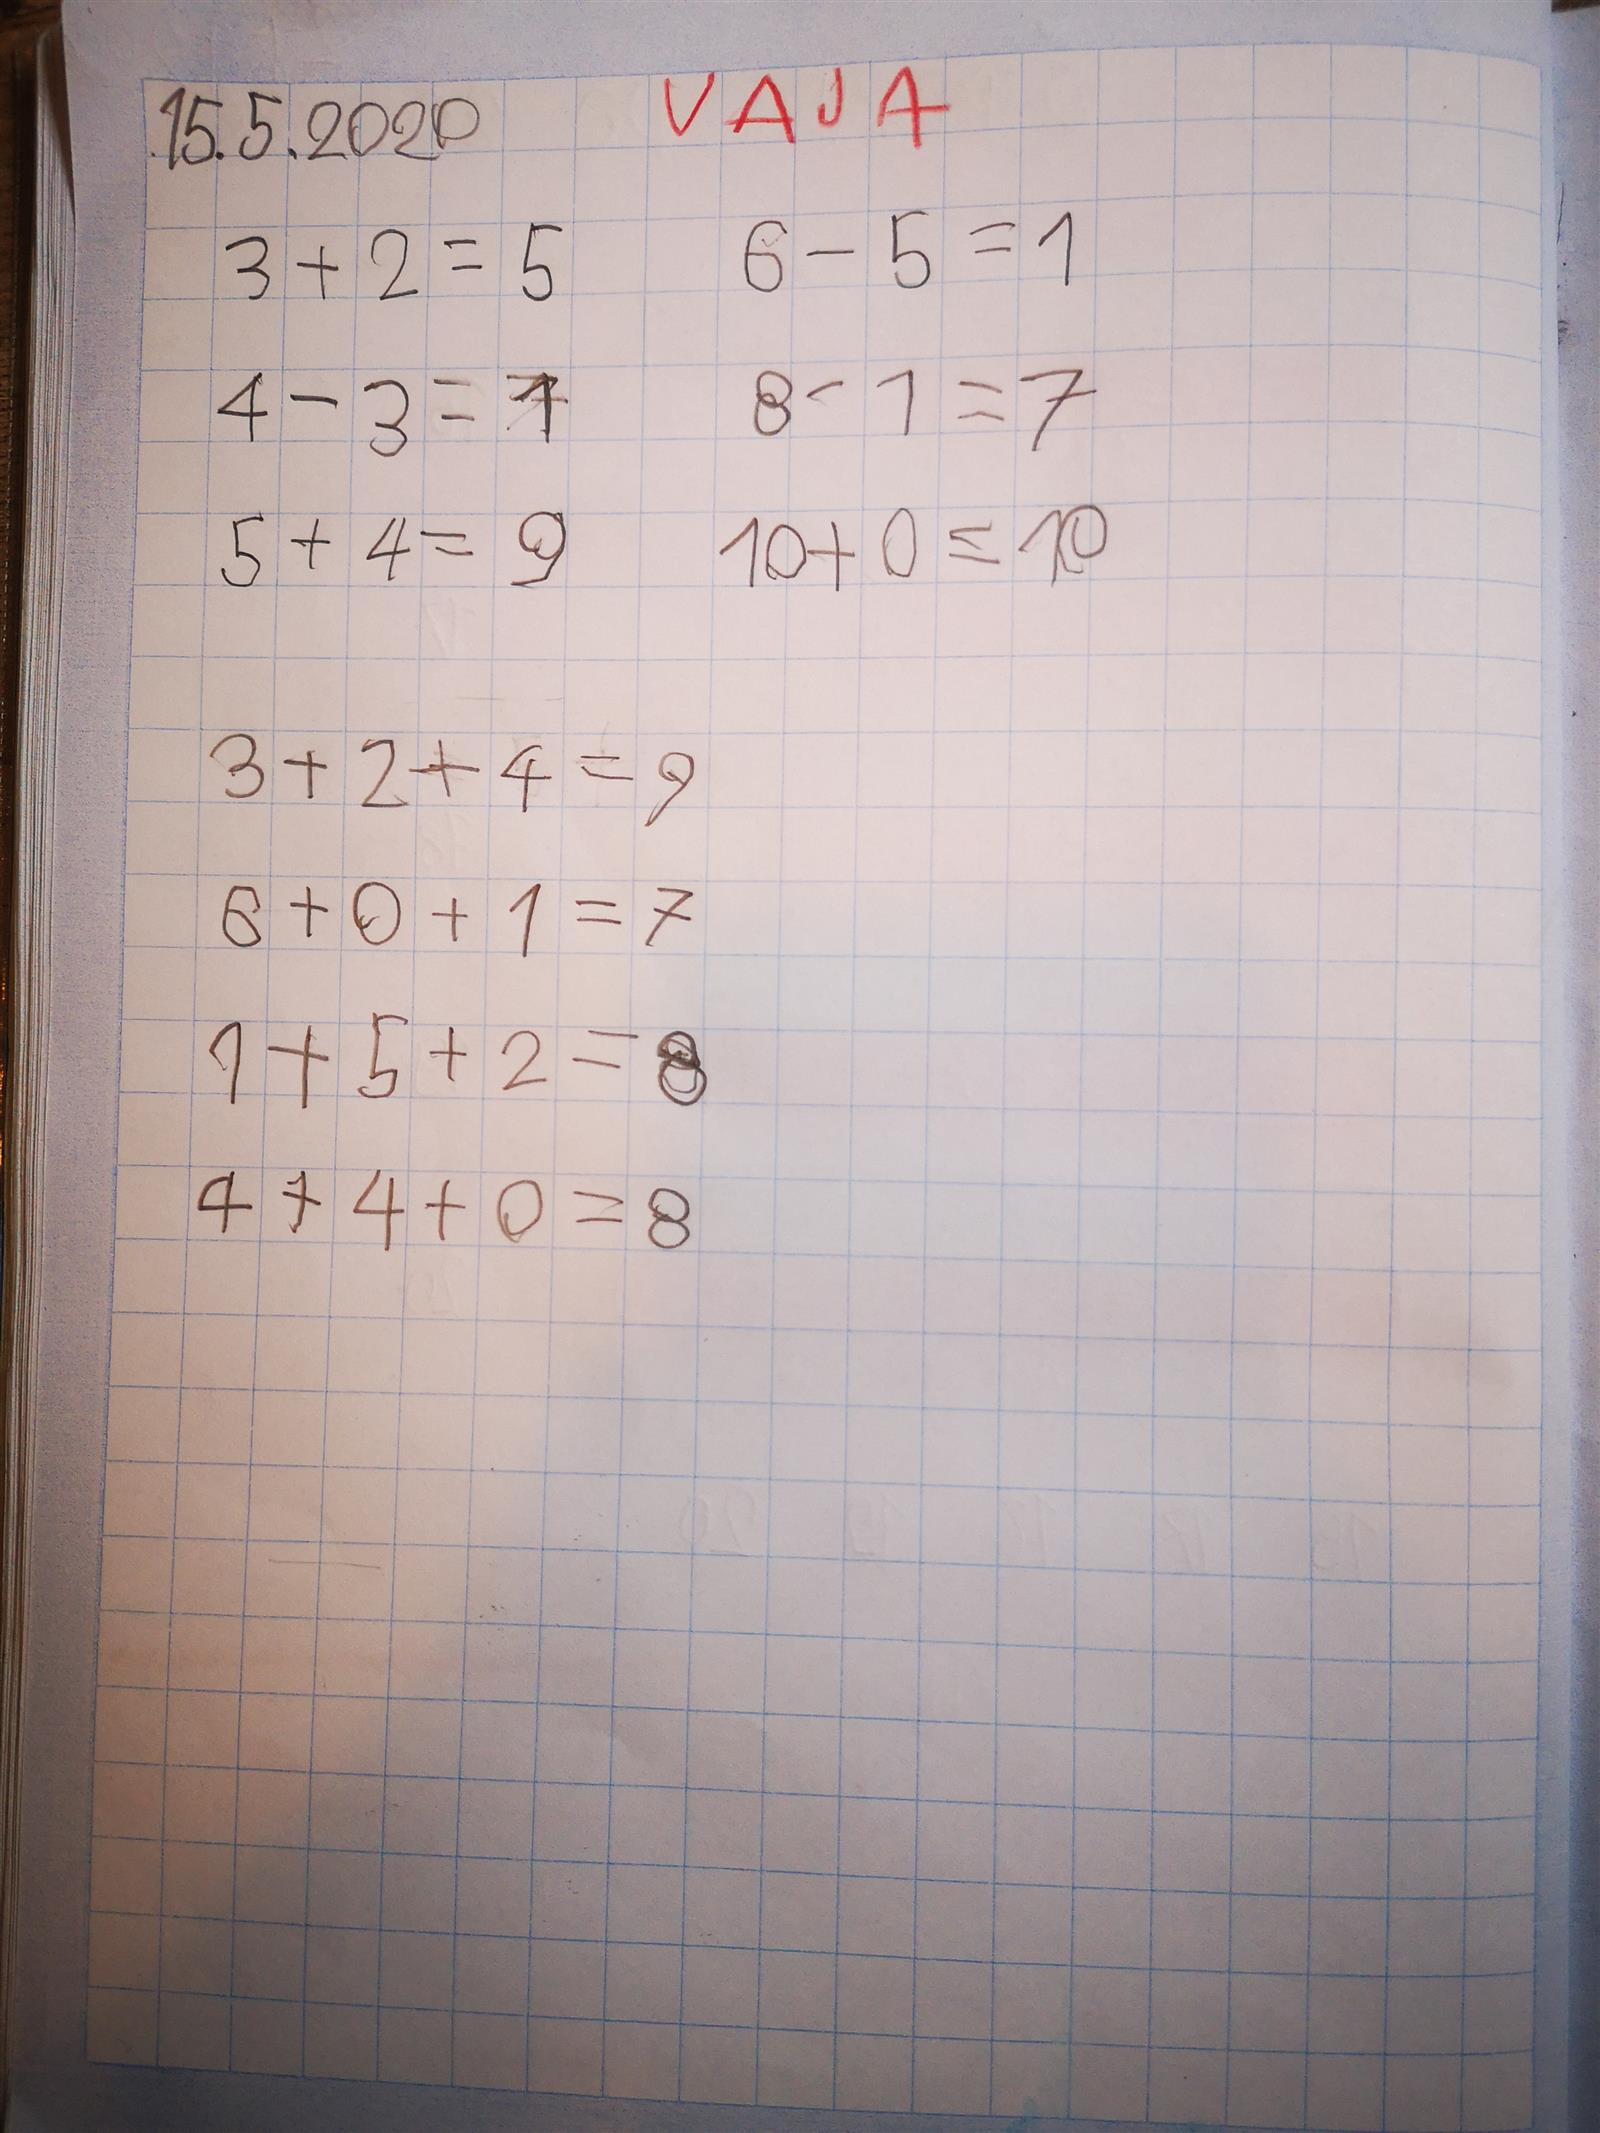 15.5.2020 VAJA
3 + 2 = 5 6 - 5 = 1
4 - 3 = 1 8 - 1 = 7
5 + 4 = 9 10 + 0 = 10
3 + 2 + 4 = 9
6 + 0 + 1 = 7
1 + 5 + 2 = 8
4 + 4 + 0 = 8